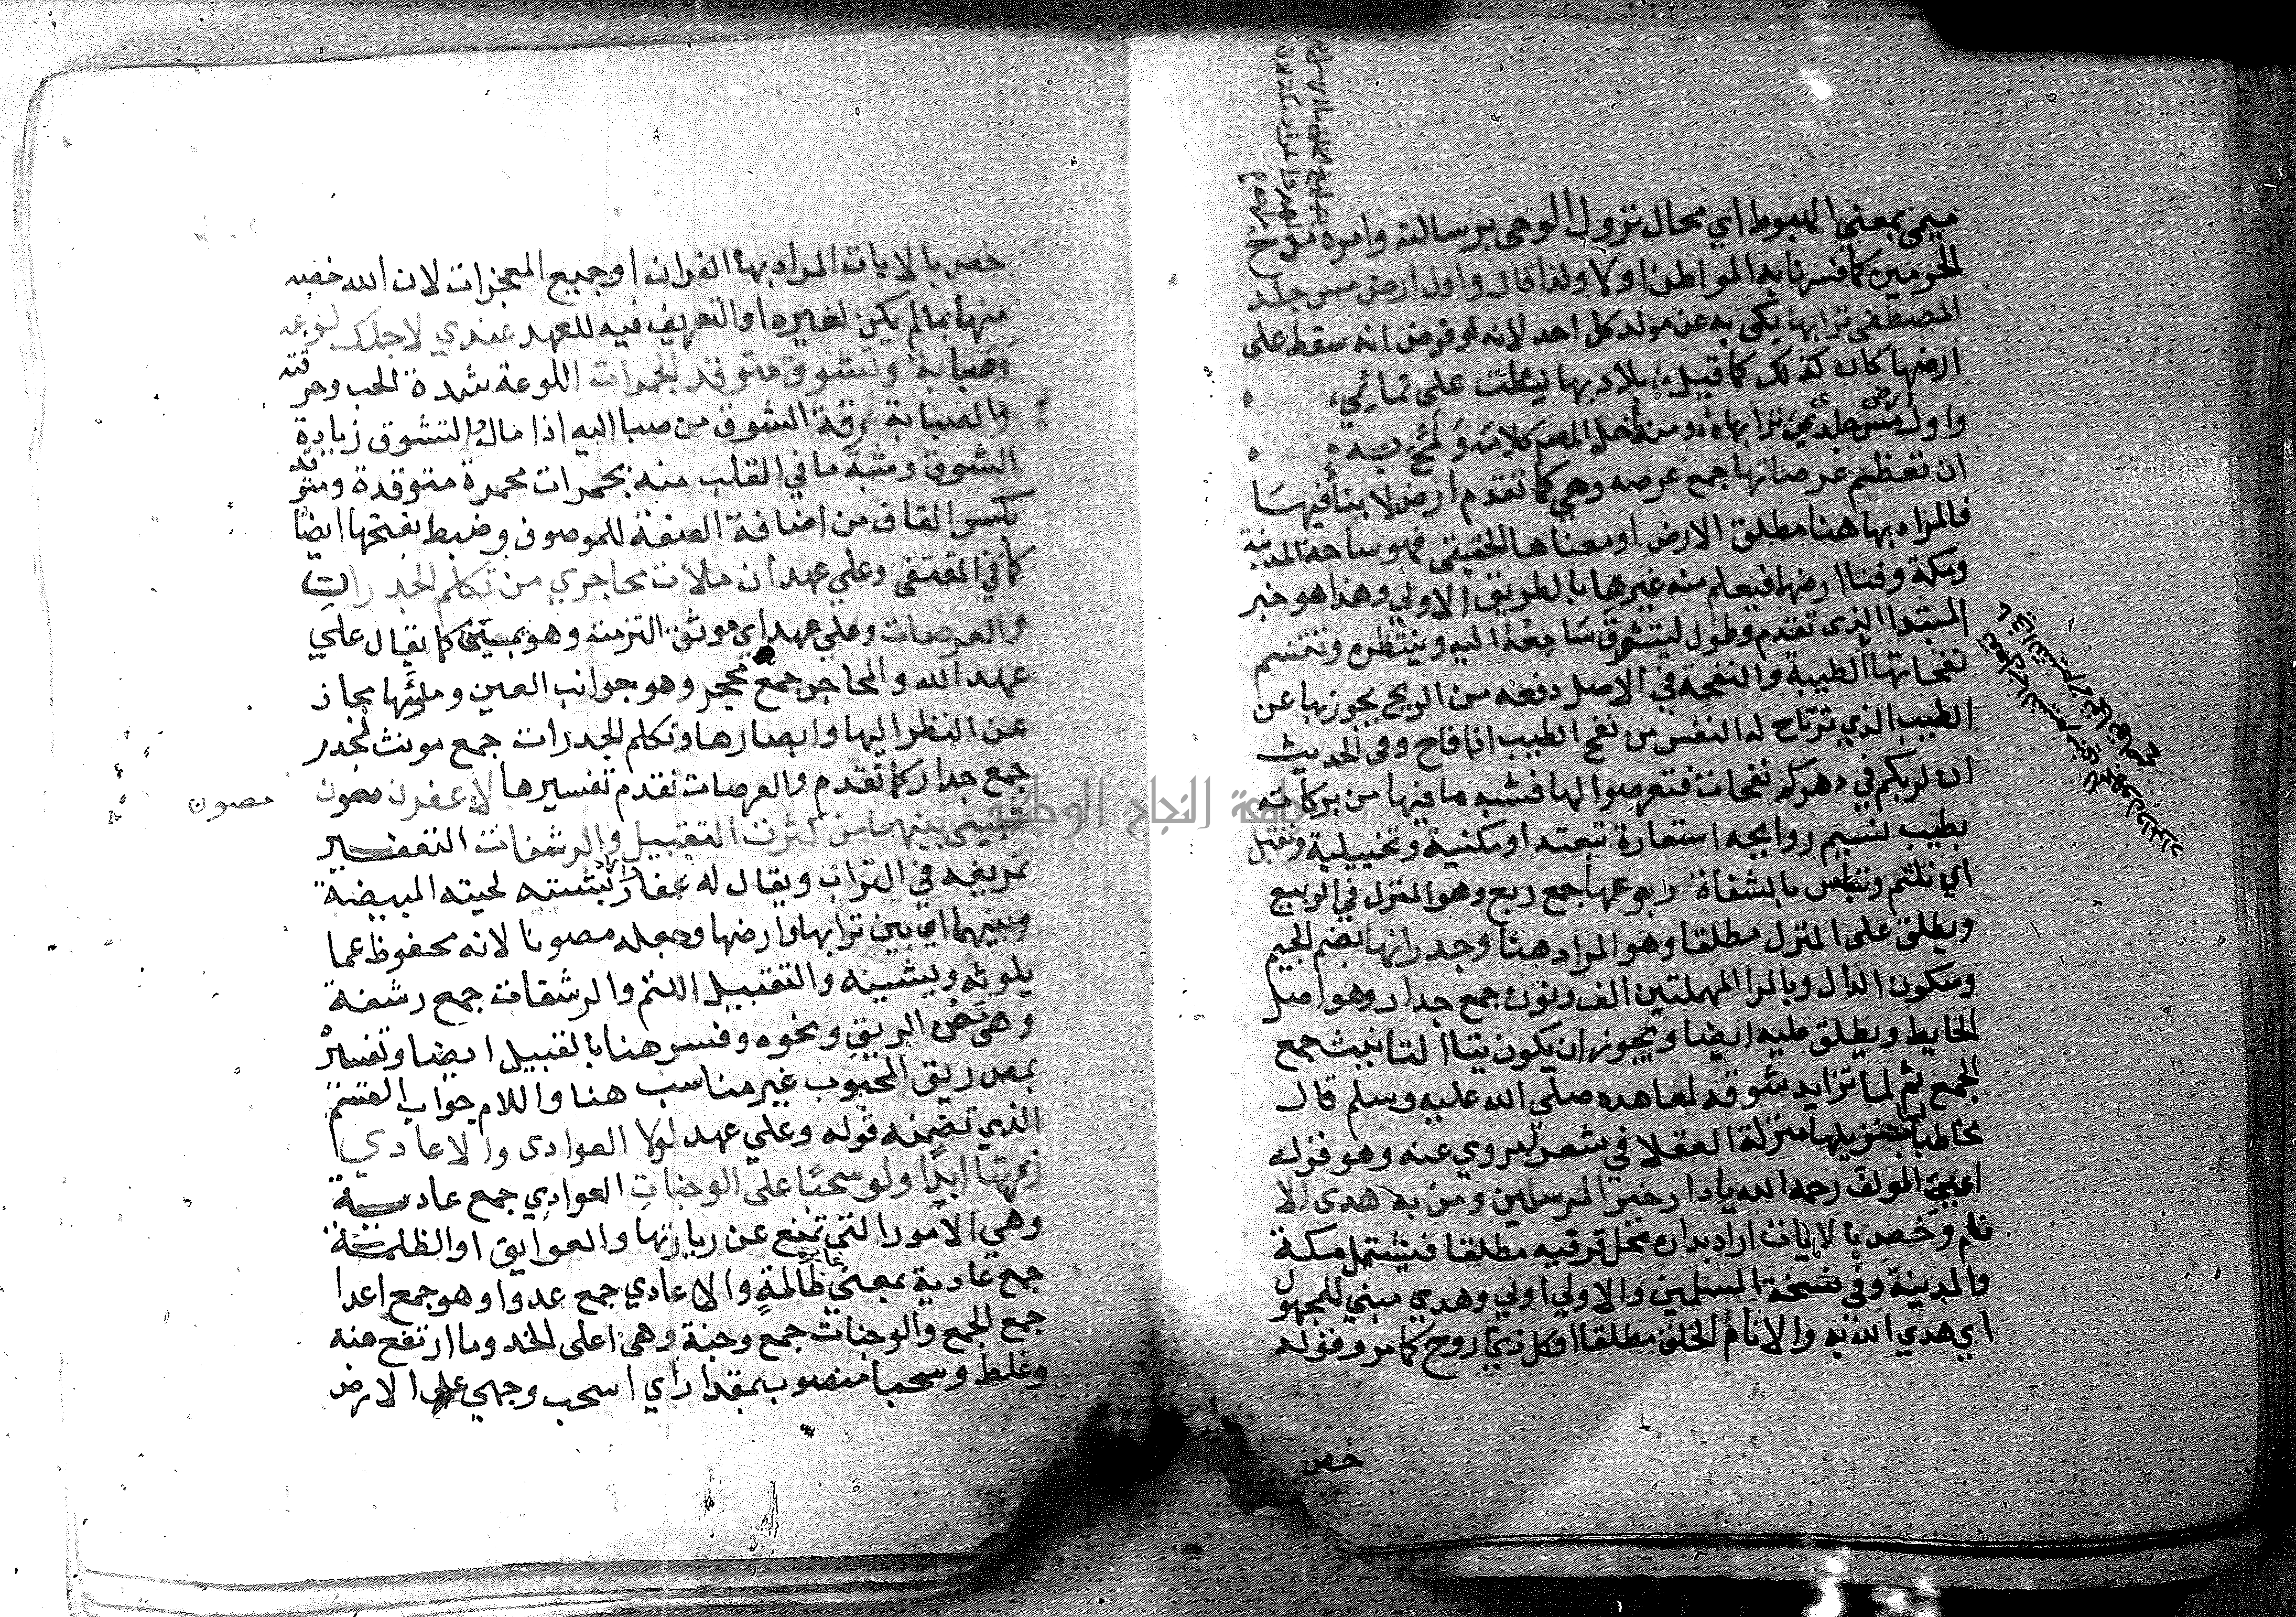 ميمي بمعني الهبوط اي محال نزول الوحي برسالته وامره
الحرمين كما فسرنا به المواطن اولا ولذا قال واول ارض مس جلد
المصطفي ترابها يكني به عن مولد كل احد لانه لو فرض انه سقط على
ارضها كان كذلك كما قيل بلاد بها نيطت علي تمائمي
واول ارض مس جلدي ترابها ومنه اخذ المصم كلامه ولمح به
ان تعظم عرصاتها جمع عرصه وهي كما تقدم ارض لا بنأ فيها
فالمراد بها هنا مطلق الارض او معناها الحقيقي فهو ساحة المدينة
ومكة وفنا ارضها فيعلم منه غيرها بالطريق الاولي وهذا هو خبر
المبتدا الذي تقدم وطول ليتشوق سامعه اليه وينتظره وتتنسم
نفحاتها الطيبة والنفحة في الاصل دفعه من الريح يجوز بها عن
الطيب الذي ترتاح له النفس من نفح الطيب اذا فاح وفي الحديث
ان لربكم في دهركم نفحات فتعرضوا لها فشبه ما فيها من بركاته
بطيب لنسيم روايحه استعارة تبعته او مكنية وتخييلية وتقبل
اي تلثم وتلمس بالشفاة ربوعها جمع ربع وهو المنزل في الربيع
ويطلق على المنزل مطلقا وهو المراد هنا وجدرانها بضم الجيم
وسكون الدال وبالرا المهملتين الف ونون جمع جدار وهو اصل
الحايط ويطلق عليه ايضا ويجوز ان يكون بتا التانيث جمع
الجمع ثم لما تزايد شوقه لمعاهده صلي الله عليه وسلم قال
مخاطبا لها منزلة العقلا في شعر له روي عنه وهو قوله
اعني المولف رحمه الله يا دار خير المرسلين ومن به هدى الا
نام وخص بالايات اراد بداره محل ترقيه مطلقا فيشتمل مكة
والمدينة وفي نسخة المسلمين والاولي اولي وهدي مبني للمجهول
اي هدي الله به والانام الخلق مطلقا اوكل ذي روح كما مر وقوله
خص
خص بالايات المراد بها القران او جميع المعجزات لان الله خصه
منها بما لم يكن لغيره او التعريف فيه للعهد عندي لاجلك لوعه
وصبابة وتشوق متوقد الجمرات اللوعة شدة الحب وحرقته
والصبابة رقة الشوق من صبا اليه اذا مال والتشوق زيادة
الشوق وشبه ما في القلب منه بجمرات محمرة متوقدة ومتوقد
بكسر القاف من اضافة الصفة للموصوف وضبط بفتحها ايضا
كما في المقتفي وعلي عهد ان ملات محاجري من تكلم الجدرات
والعرصات وعلي عهد اي موثق التزمته وهو يمين كما يقال علي
عهد الله والمحاجر جمع محجر وهو جوانب العين وملئها مجاز
عن النظر اليها وابصارها وتكلم الجدرات جمع مونث لجدر
جمع جدار كما تقدم والعرصات تقدم تفسيرها لاعفرن مصون
مصون
شيبي بينهما من كثرت التقبيل والرشفات التعفير
تمريغه في التراب ويقال له عفار وشيبته لحيته المبيضة
وبينهما اي بين ترابها وارضها وجعله مصونا لانه محفوظ عما
يلوثه ويشينه والتقبيل اللثم والرشفات جمع رشفة
وهي مص الريق ونحوه وفسر هنا بالتقبيل ايضا وتفسيره
بمص ريق المحبوب غير مناسب هنا واللام جواب القسم
الذي تضمنه قوله وعلي عهد لولا العوادي والاعادي
زرتها ابدا ولو سحبا على الوجنات العوادي جمع عادية
وهي الامور التي تمنع عن زيارتها والعوايق او الظلمة
جمع عادية بمعني ظالمة والاعادي جمع عدوا وهو جمع اعدا
جمع الجمع والوجنات جمع وجنة وهي اعلى الخد وما ارتفع منه
وغلظ وسحبا منصوب بمقدار اي اسحب وجهي على الارض
جامعة النجاح الوطنية